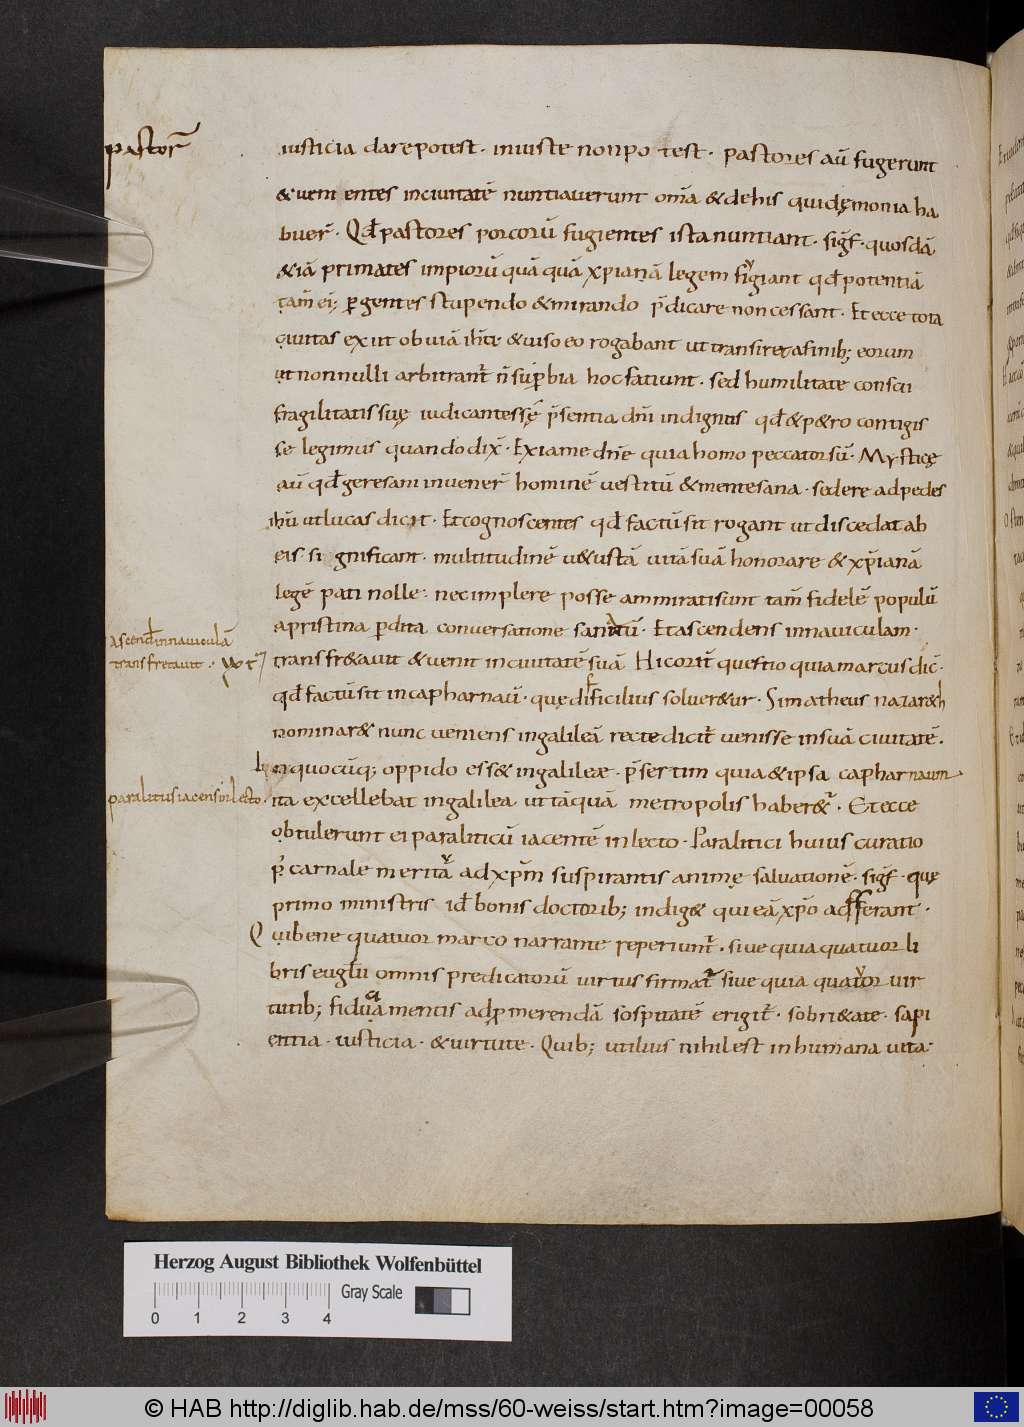 pastor̄
iusticia dare potest · iniuste non potest · pastores aū fugerunt
& venientes in ciuitatē nuntiauerunt om̄a & de his qui dęmonia ha
buer̄ · Qđ pastores porcorū fugientes ista nuntiant · sigf̄ · quosdā
& iā primates impiorū quāquā xpianā legem fugiant qđ potentiā
tam̄ ei; ꝑgentes stupendo & mirando p̄dicare non cessant · Et ecce tota
ciuitas exiit obuiā ihū & uiso eo rogabant ut transiret a finib; eorum
ut nonnulli arbitrant̄ n̄ suꝑbia hoc fatiunt · sed humilitate conscii
fragilitatis suę iudicantes sę p̄sentia dn̄i indignus qđ & p&ro contigis
se legimus quando dix̄ · Exi a me dn̄e quia homo peccator sū · Mysticę
aū qđ geresani inuener̄ hominē uestitū & mente sana · sedere ad pedes
ihū ut lucas dicit · Et cognoscentes qđ factū sit rogant ut discedat ab
eis significant · multitudinē u&ustā uitā suā honorare & xp̄ianā
legē pati nolle · nec implere posse ammirati sunt tam̄ fidelē populū
a pristina ꝑdita conversatione sanatū · Et ascendens in nauiculam ·
Ascend̄ in nauiculā
transfretauit ·
transfr&auit & uenit in ciuitatē suā Hic orit̄ questio quia marcus dic̄ ·
qđ factū sit in capharnaū · quę difficilius soluer&ur · Si matheus nazar&h
nominar& nunc ueniens in galileā recte dicit̄ uenisse in suā ciuitatē ·
in quocūq; oppido ess& in galileae · p̄sertim quia & ipsa capharnaum
paralitus iacens in lecto ·
ita excellebat in galilea ut tāquā metropolis haber&̄ · Et ecce
obtulerunt ei paraliticū iacentē in lecto · Paralitici huius curatio
p̄ carnale meritā ad xp̄m suspirantis animę saluationē · sigf̄ · quę
primo ministris id̄ bonis doctorib; indig& qui eā xp̄o adferant ·
Qui bene quatuor marco narrante reperiunt̄ · siue quia quatuor li
bris eugl̄ii omnis predicatorū uirtus firmat̄ siue quia quatuor uir
tutib; fiducia mentis ad ꝓmerendā sospitatē erigit̄ · sobri&ate · sapi
entia · iusticia · & uirtute · Quib; utilius nihil est in humana uita ·
Herzog August Bibliothek Wolfenbüttel
Gray Scale
0 1 2 3 4
© HAB http://diglib.hab.de/mss/60-weiss/start.htm?image=00058